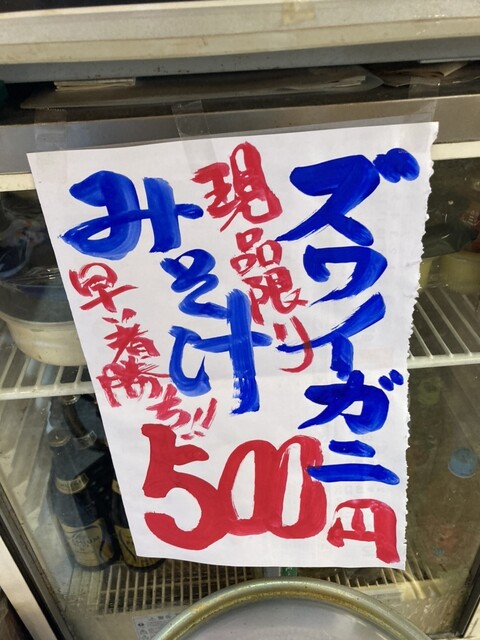 ズワイガニ
現品限り
みそ汁
早い者勝ち!!
500円